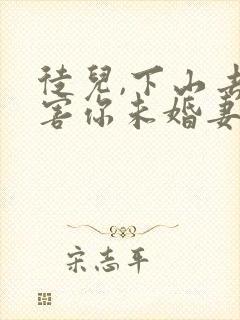 徒兒,下山去
害你未婚妻
宋志平